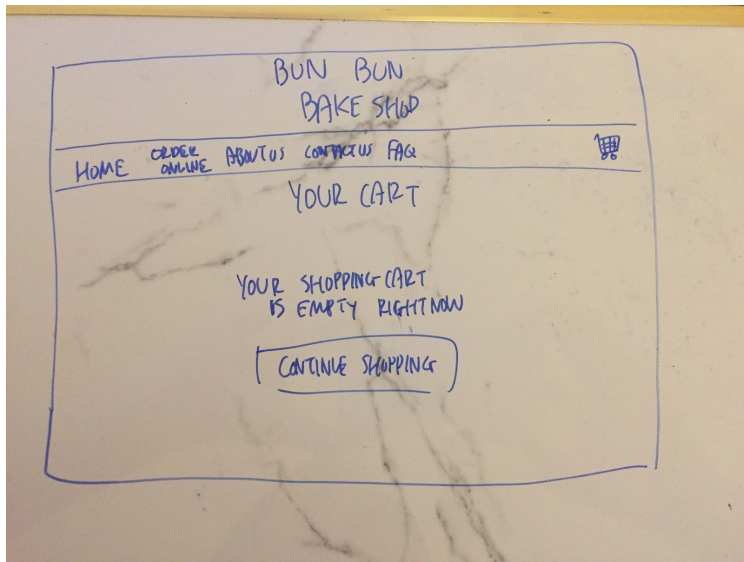 BUN BUN
BAKE SHOP
HOME ORDER ONLINE ABOUT US CONTACT US FAQ
YOUR CART
YOUR SHOPPING CART
IS EMPTY RIGHT NOW
CONTINUE SHOPPING